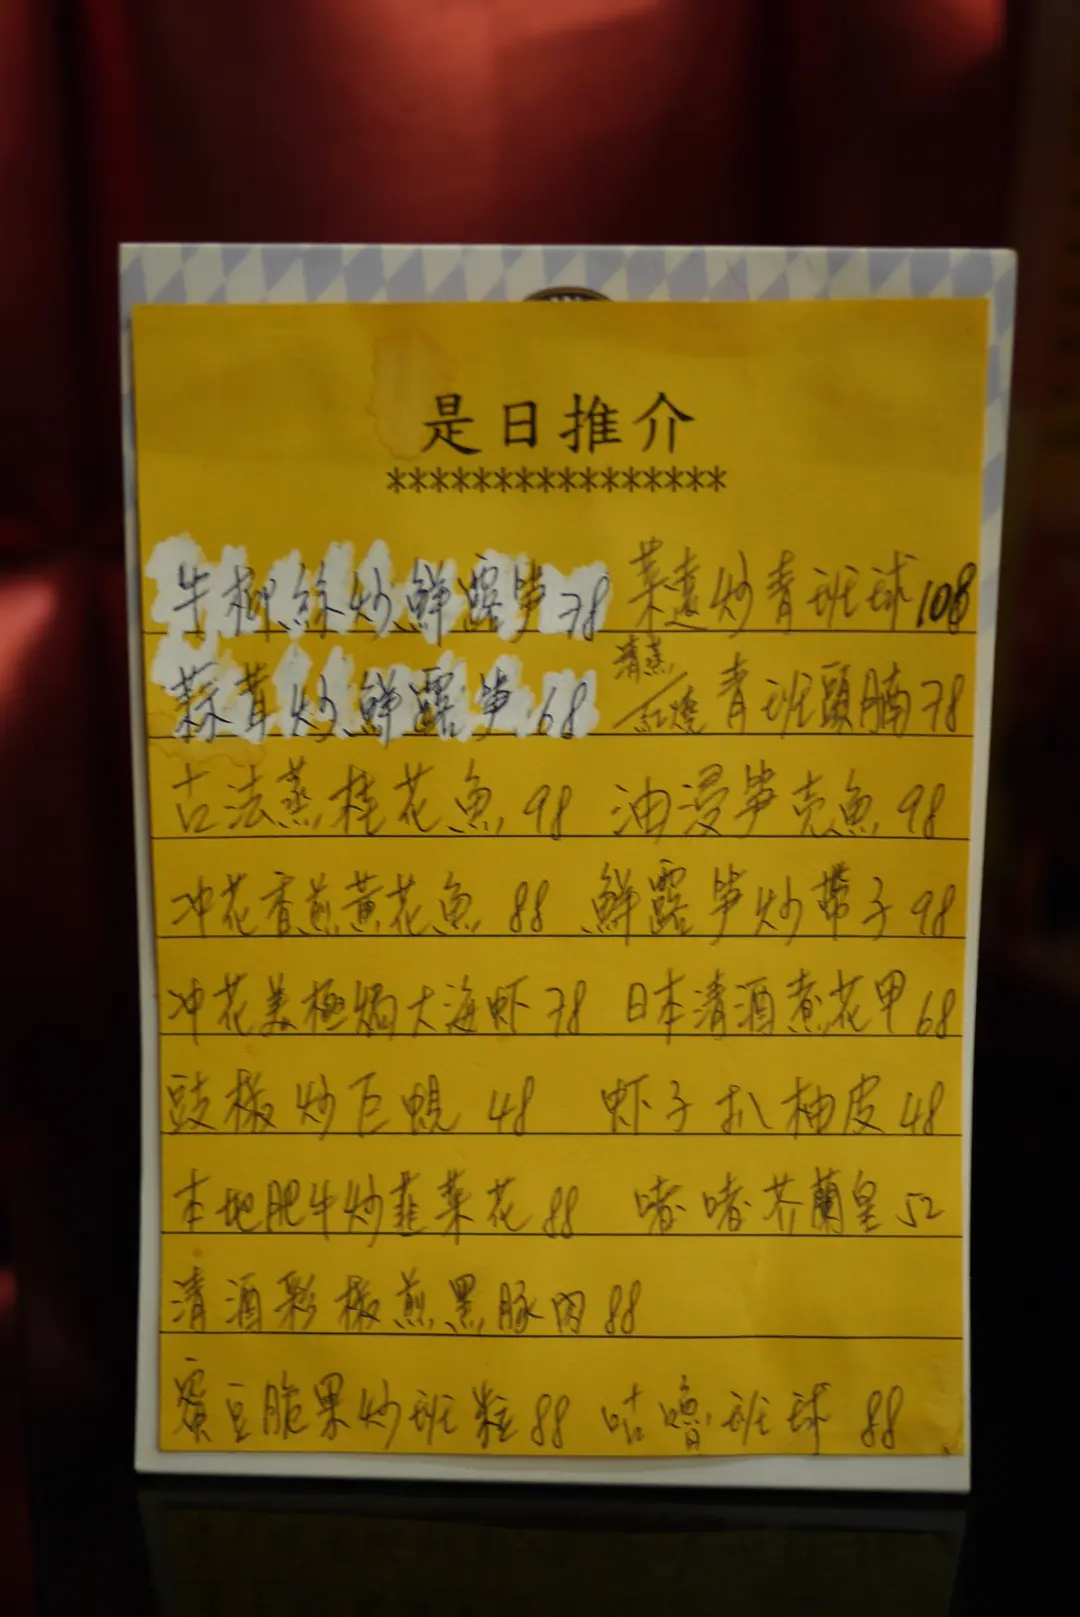 是日推介
****************
牛柳絲炒鮮露笋 78 菜遠炒青班球 108
蒜茸炒鮮露笋 68 清蒸/紅燒 青班頭腩 78
古法蒸桂花魚 98 油浸笋壳魚 98
冲花香煎黃花魚 88 鮮露笋炒帶子 98
冲花美極焗大海虾 78 日本清酒煮花甲 68
豉椒炒巨蜆 48 虾子扒柚皮 48
本地肥牛炒韮菜花 88 啫啫芥蘭皇 52
清酒彩椒煎黑豚肉 88
蜜豆脆果炒班粒 88 咕嚕班球 88